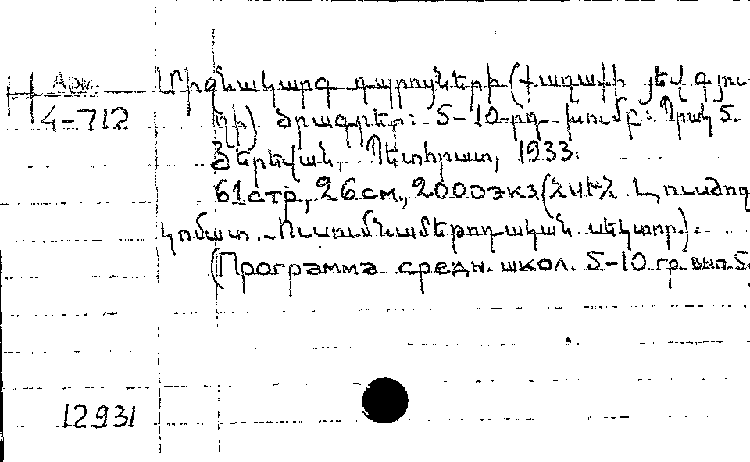 Арм. Միջնակարգ դպրոցների (քաղաքի յեվ գյու-
4-712 ղի) ծրագրեր: 5-10-րդ խումբ: Պրակ 5.
Յերեվան, Պետհրատ, 1933.
61стр., 26см., 2000экз (ՀՍԽՀ Լուսժող
կոմատ. Ուսումնամեթոդական սեկտոր.).
(Программа средн. школ. 5-10 гр. вып. 5
12931